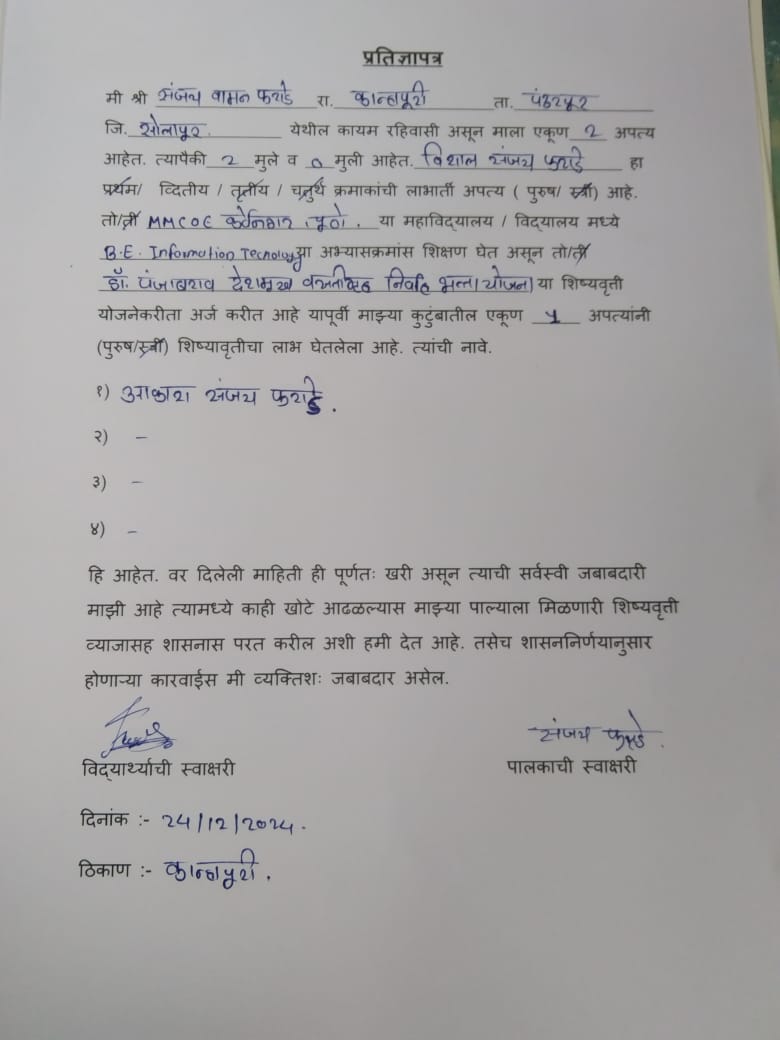 प्रतिज्ञापत्र
मी श्री संजय वामन फराडे रा. कान्हापूरी ता. पंढरपूर
जि. सोलापूर. येथील कायम रहिवासी असून माला एकूण 2 अपत्य
आहेत. त्यापैकी 2 मुले व 0 मुली आहेत. विशाल संजय फराडे हा
प्रथम/ व्दितीय / तृतीय / चतुर्थ क्रमाकांची लाभार्ती अपत्य ( पुरुष/ स्त्री) आहे.
तो/ती MMCOE कर्वेनगर, पूणे. या महाविद्यालय / विद्यालय मध्ये
B.E. Information Tecnology या अभ्यासक्रमांस शिक्षण घेत असून तो/ती
डॉ. पंजाबराव देशमुख वसतीगृह निर्वाह भत्ता योजना या शिष्यवृत्ती
योजनेकरीता अर्ज करीत आहे यापूर्वी माझ्या कुटुंबातील एकूण अपत्यांनी
(पुरुष/स्त्री) शिष्यावृतीचा लाभ घेतलेला आहे. त्यांची नावे.
१) आकाश संजय फराडे.
२) -
३) -
४) -
हि आहेत. वर दिलेली माहिती ही पूर्णतः खरी असून त्याची सर्वस्वी जबाबदारी
माझी आहे त्यामध्ये काही खोटे आढळल्यास माझ्या पाल्याला मिळणारी शिष्यवृत्ती
व्याजासह शासनास परत करील अशी हमी देत आहे. तसेच शासननिर्णयानुसार
होणाऱ्या कारवाईस मी व्यक्तिशः जबाबदार असेल.
संजय फराडे.
विद्यार्थ्याची स्वाक्षरी पालकाची स्वाक्षरी
दिनांक :- 24/12/2024.
ठिकाण :- कान्हापूरी.